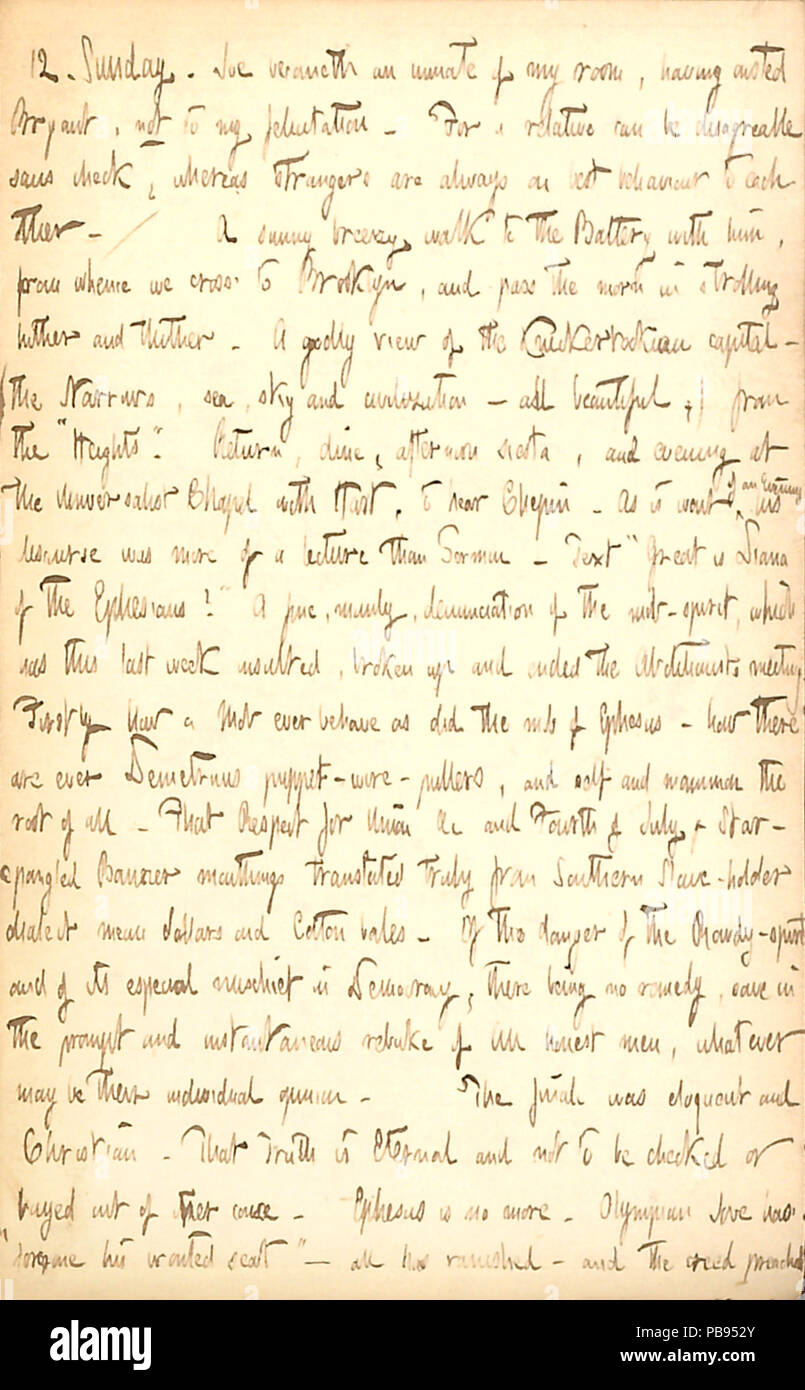 12. Sunday. Joe becometh an inmate of my room, having ousted
Bryant, not to my felicitation. For a relative can be disagreeable
sans check, whereas strangers are always on best behaviour to each
other. A sunny breezy walk to the Battery with him,
from whence we cross to Brooklyn, and pass the morn in strolling
hither and thither. A goodly view of the Knickerbockian capital -
(the Narrows, sea, sky and civilization - all beautiful,) from
the "Heights". Return, dine, afternoon siesta, and evening at
the Universalist Chapel with Hart, to hear Chapin. As is wont of an Evening his
discourse was more of a lecture than Sermon - Text "Great is Diana
of the Ephesians!" A fine, manly, denunciation of the mob-spirit, which
has this last week insulted, broken up and ended the Abolitionists meeting.
Firstly how a Mob ever behave as did the mob of Ephesus - how there
are ever Demetrius puppet-wire-pullers, and self and mammon the
root of all - That Respect for Union &c and Fourth of July & Star-
spangled Banner mouthings translated truly from Southern Slave-holder
dialect mean dollars and Cotton bales. Of the danger of the Rowdy-spirit
and of its especial mischief in Democracy, there being no remedy, save in
the prompt and instantaneous rebuke of all honest men, whatever
may be their individual opinion. The finale was eloquent and
Christian - That Truth is Eternal and not to be checked or
bayed out of her course. Ephesus is no more. Olympian Jove has
"foregone his wonted seat" - all has vanished - and the creed preached
alamy
Image ID: PB952Y
www.alamy.com